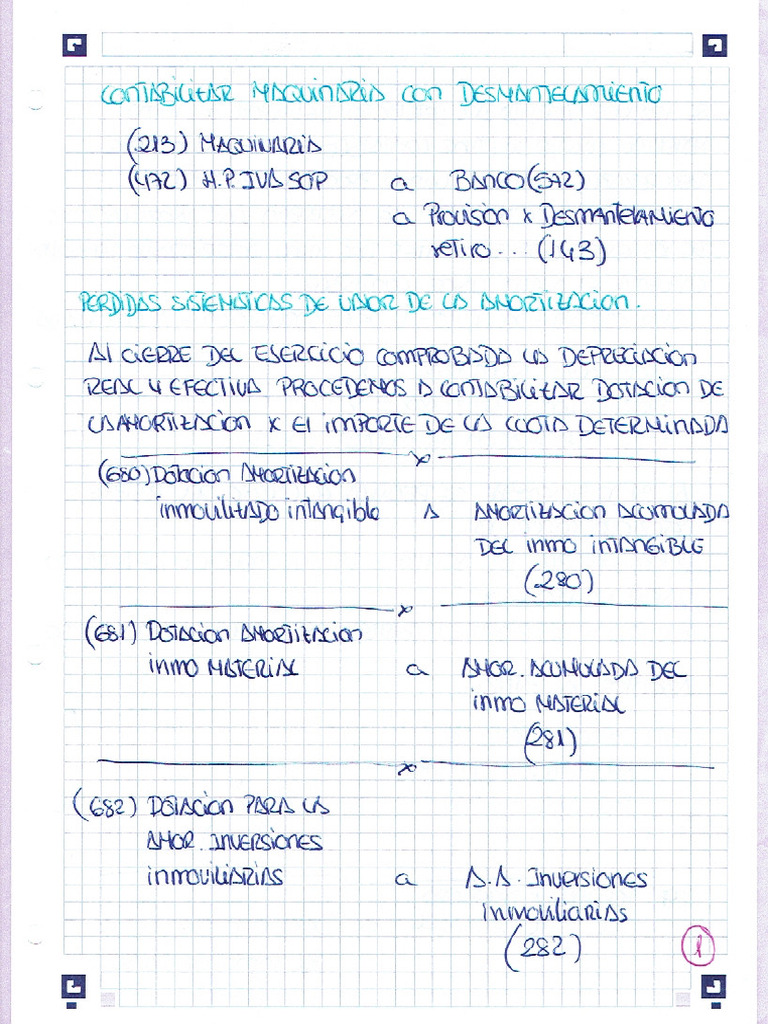 CONTABILIZAR MAQUINARIA CON DESMANTELAMIENTO
(213) MAQUINARIA
(472) H.P. IVA SOP a BANCO (572)
a PROVISION X DESMANTELAMIENTO
retiro... (143)
PERDIDAS SISTEMATICAS DE VALOR DE LA AMORTIZACION.
Al CIERRE DEL EJERCICIO COMPROBADA LA DEPRECIACION
REAL Y EFECTIVA PROCEDEMOS A CONTABILIZAR DOTACION DE
LA AMORTIZACION X El IMPORTE DE LA CUOTA DETERMINADA
x
(680) DOTACION AMORTIZACION
inmovilizado intangible A AMORTIZACION ACUMULADA
DEL inmo INTANGIBLE
(280)
x
(681) DOTACION AMORTIZACION
inmo MATERIAL a AMOR. ACUMULADA DEL
inmo MATERIAL
(281)
x
(682) DOTACION PARA LA
AMOR. INVERSIONES
inmoviliarias a A.A. Inversiones
Inmoviliarias
(282)
1